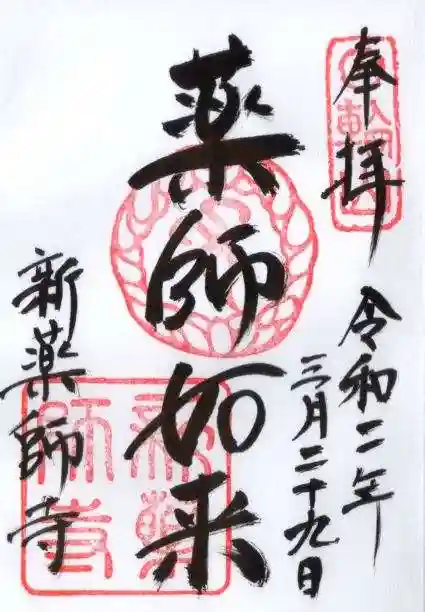 奉拝
令和二年
三月二十九日
薬師如来
新薬師寺
新薬
師寺